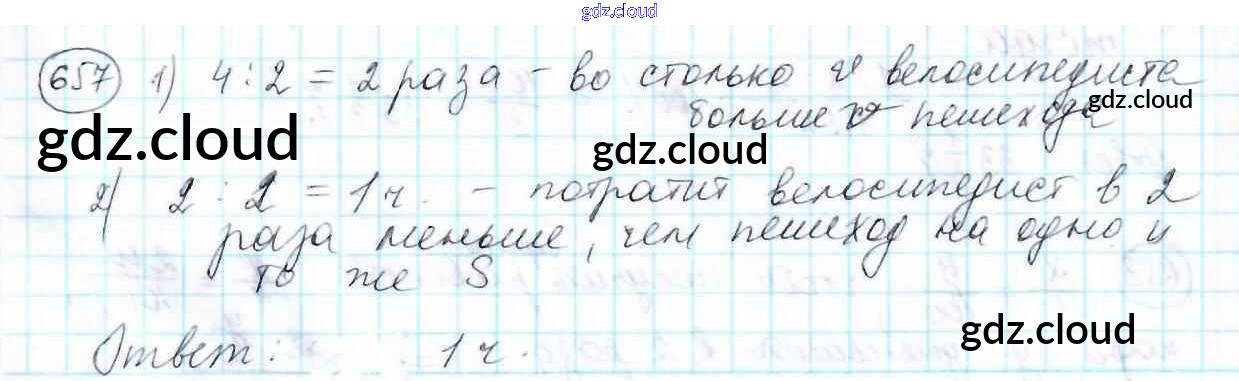 gdz.cloud
657 1) 4 : 2 = 2 раза - во столько v велосипедиста
больше v пешехода
gdz.cloud
gdz.cloud
gdz.cloud
2) 2 : 2 = 1 ч. - потратит велосипедист в 2
раза меньше, чем пешеход на одно и
то же S
gdz.cloud
Ответ: 1 ч.